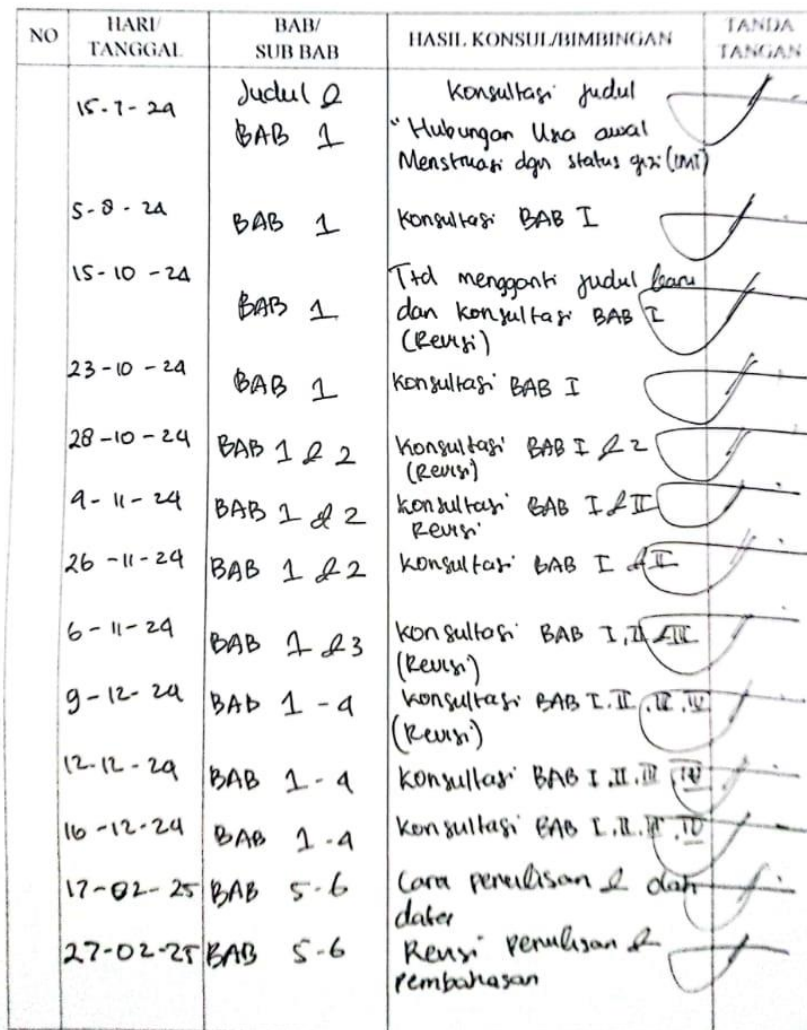 NO
HARI/
TANGGAL
BAB/
SUB BAB
HASIL KONSUL/BIMBINGAN
TANDA
TANGAN
15-7-24
Judul &
BAB 1
Konsultasi judul
"Hubungan Usia awal
Menstruasi dgn status gizi (IMT)
5-8-24
BAB 1
Konsultasi BAB I
15-10-24
BAB 1
Ttd mengganti judul baru
dan konsultasi BAB I
(Revisi)
23-10-24
BAB 1
Konsultasi BAB I
28-10-24
BAB 1 & 2
Konsultasi BAB I & 2
(Revisi)
9-11-24
BAB 1 & 2
Konsultasi BAB I & II
Revisi
26-11-24
BAB 1 & 2
Konsultasi BAB I & II
6-11-24
BAB 1 & 3
Konsultasi BAB I, II & III
(Revisi)
9-12-24
BAB 1-4
Konsultasi BAB I. II. III. IV
(Revisi)
12-12-24
BAB 1-4
Konsultasi BAB I. II. III. IV
16-12-24
BAB 1-4
Konsultasi BAB I. II. III. IV
17-02-25
BAB 5-6
Cara penulisan &
27-02-25
BAB 5-6
Revisi penulisan &
pembahasan